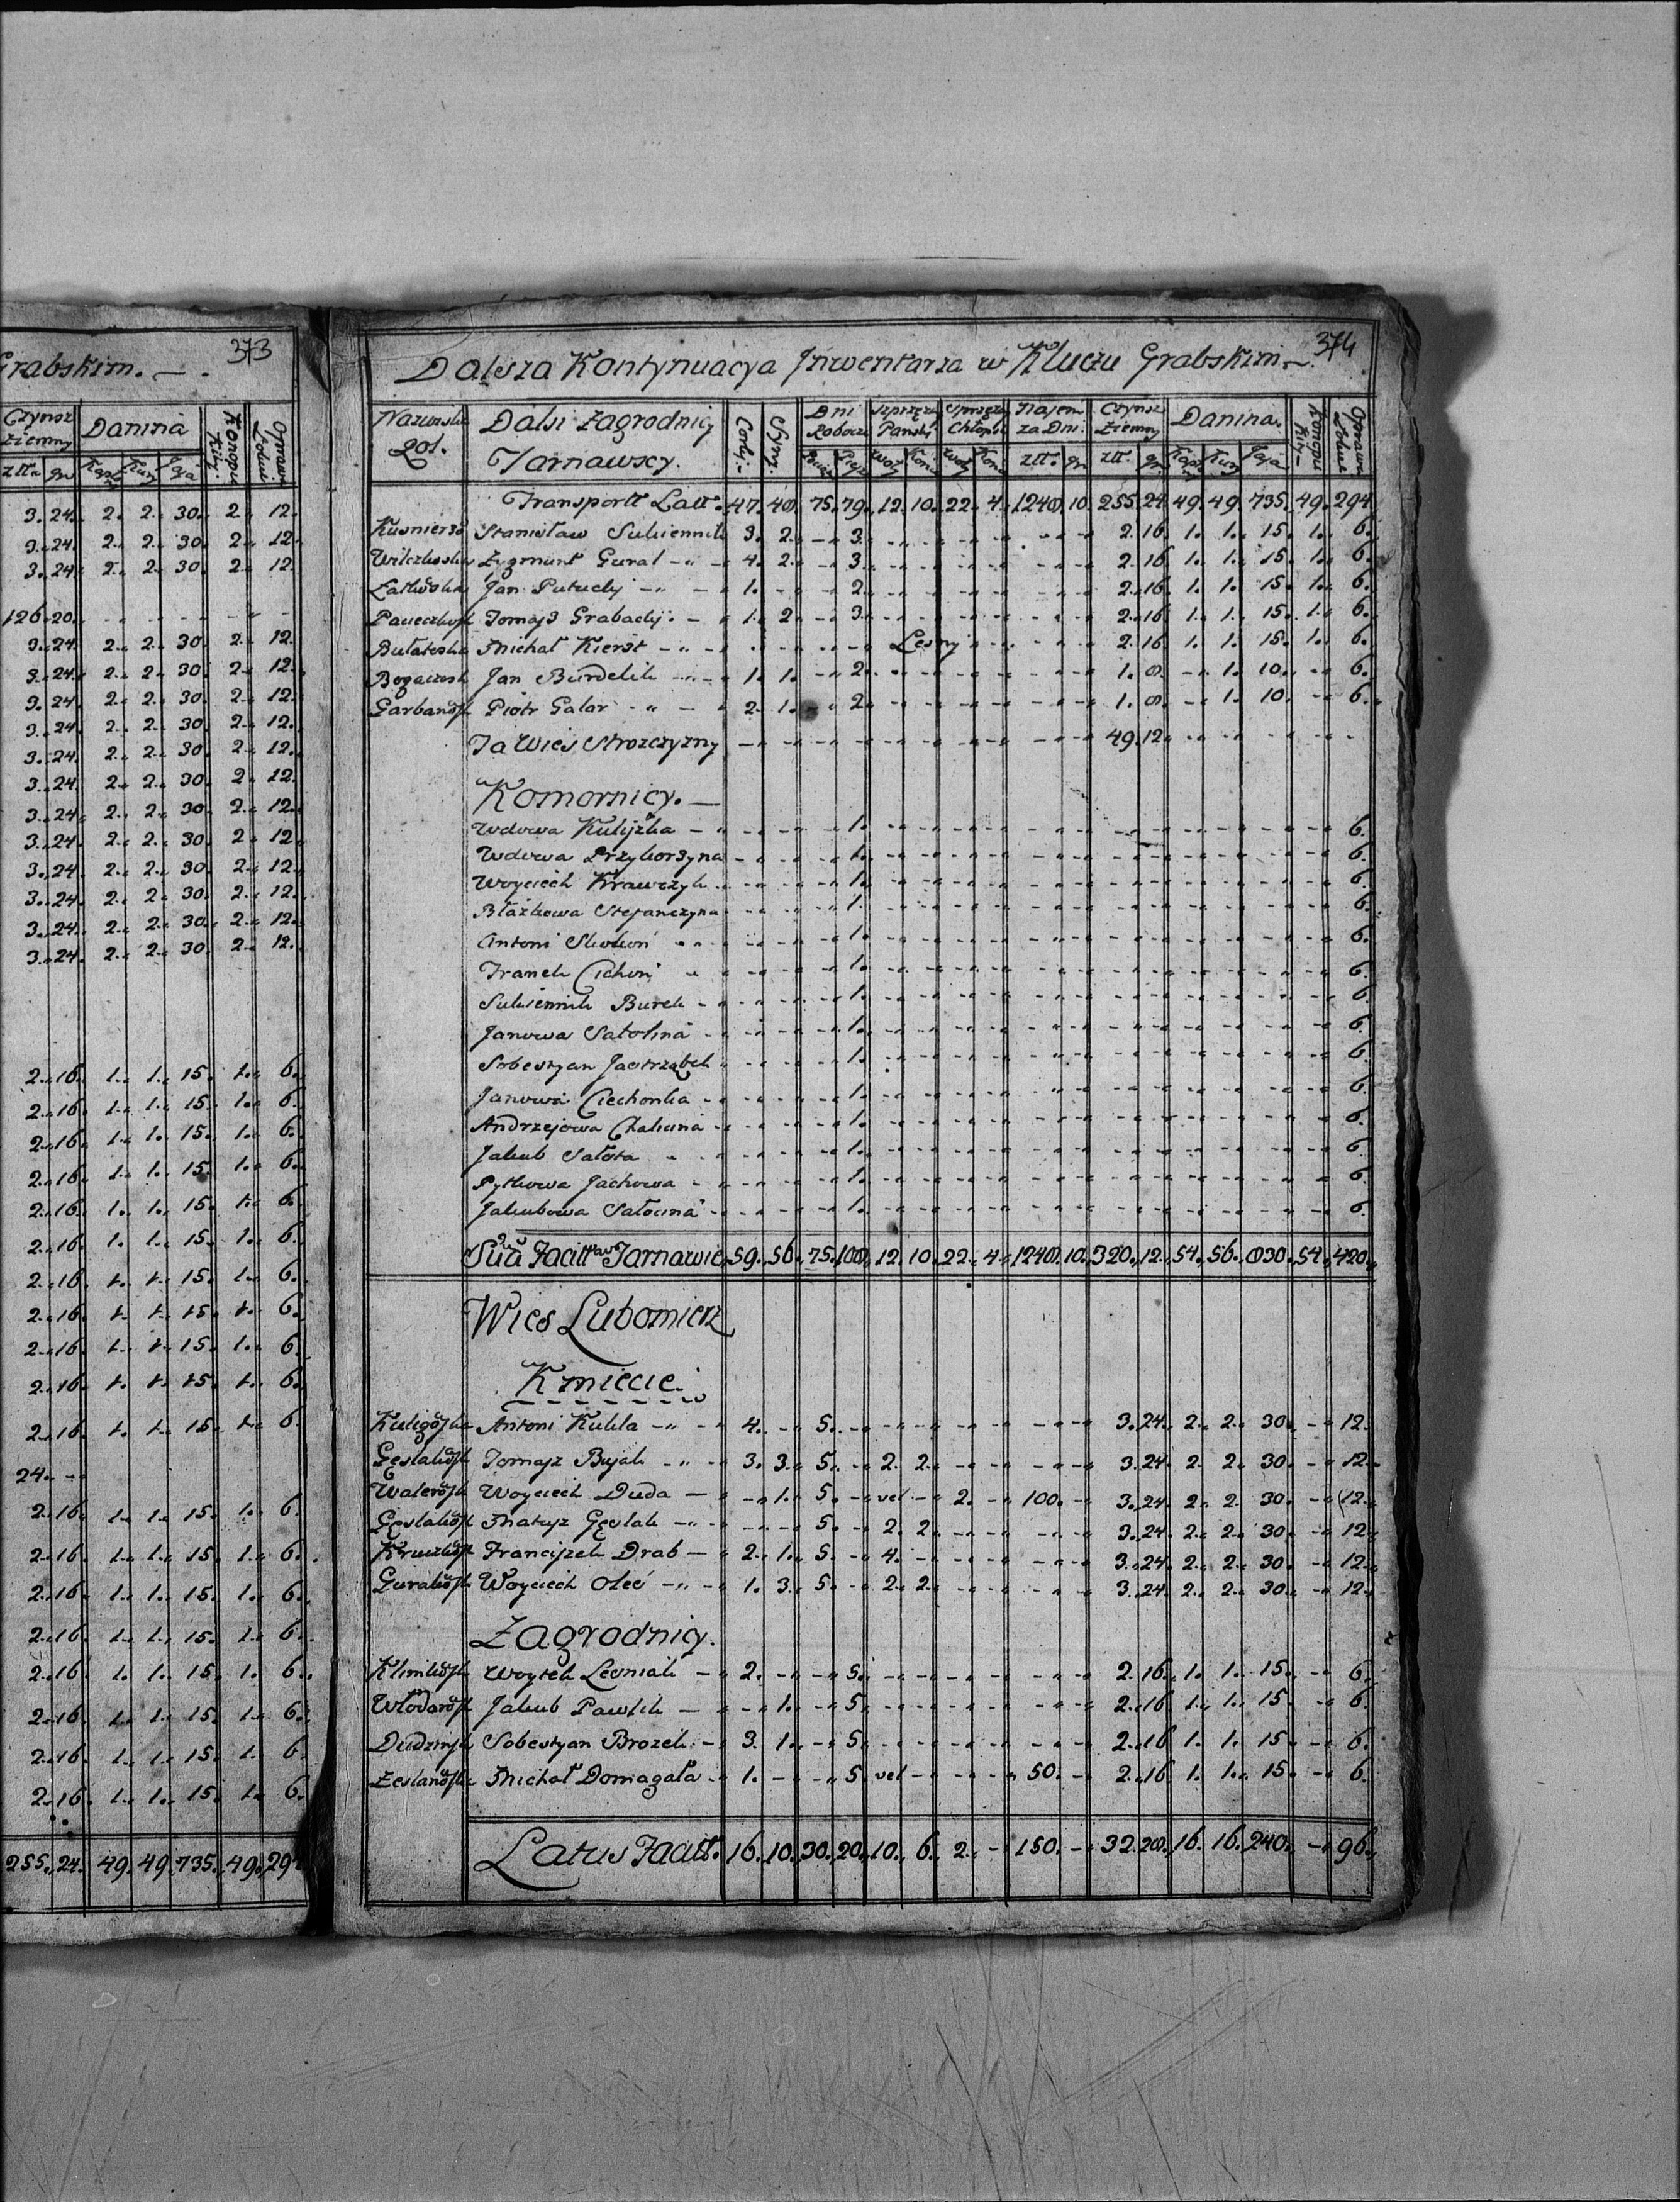 373
Grabskim. —.
Czynsz Ziemny Danina Konopie Kity. Oprawa Zolwi
Złł. gr. Kapł. Kury Jaja
3. 24. 2. 2. 30. 2. 12.
3. 24. 2. 2. 30. 2. 12.
3. 24. 2. 2. 30. 2. 12.
126. 20. - - - - -
3. 24. 2. 2. 30. 2. 12.
3. 24. 2. 2. 30. 2. 12.
3. 24. 2. 2. 30. 2. 12.
3. 24. 2. 2. 30. 2. 12.
3. 24. 2. 2. 30. 2. 12.
3. 24. 2. 2. 30. 2. 12.
3. 24. 2. 2. 30. 2. 12.
3. 24. 2. 2. 30. 2. 12.
3. 24. 2. 2. 30. 2. 12.
3. 24. 2. 2. 30. 2. 12.
3. 24. 2. 2. 30. 2. 12.
3. 24. 2. 2. 30. 2. 12.
2. 16. 1. 1. 15. 1. 6.
2. 16. 1. 1. 15. 1. 6.
2. 16. 1. 1. 15. 1. 6.
2. 16. 1. 1. 15. 1. 6.
2. 16. 1. 1. 15. 1. 6.
2. 16. 1. 1. 15. 1. 6.
2. 16. 1. 1. 15. 1. 6.
2. 16. 1. 1. 15. 1. 6.
2. 16. 1. 1. 15. 1. 6.
2. 16. 1. 1. 15. 1. 6.
2. 16. 1. 1. 15. 1. 6.
24. -
2. 16. 1. 1. 15. 1. 6.
2. 16. 1. 1. 15. 1. 6.
2. 16. 1. 1. 15. 1. 6.
2. 16. 1. 1. 15. 1. 6.
2. 16. 1. 1. 15. 1. 6.
2. 16. 1. 1. 15. 1. 6.
2. 16. 1. 1. 15. 1. 6.
2. 16. 1. 1. 15. 1. 6.
255. 24. 49. 49. 735. 49. 294
374
Dalsza Kontynuacya Jnwentarza w Kluczu Grabskim. —.
Nazwiska Rol. Dalsi Zagrodnicy Tarnawscy. Corki Syny. Dni Robocze Sprzęzay Panski Sprzęzay Chłopski Najem za Dni Czynsz Ziemny Danina. Konopie Kity Oprawa
Piesz. Woły Koni Woły Koni złł. gr. złł. gr. Kapł. Kury Jaja
Transportt Latt. 47. 48. 75. 79. 12. 10. 22. 4. 1248. 10. 255. 24. 49. 49. 735. 49. 294.
Stanisław Sukiennik 3. 2. - 3. - - - - - - 2. 16. 1. 1. 15. 1. 6.
Zygmunt Gural 4. 2. - 3. - - - - - - 2. 16. 1. 1. 15. 1. 6.
Jan 1. - - 2. - - - - - - 2. 16. 1. 1. 15. 1. 6.
Tomasz 1. 2. - 3. - - - - - - 2. 16. 1. 1. 15. 1. 6.
Michał Kierst - - - - Lesny - - - - 2. 16. 1. 1. 15. 1. 6.
Jan Burdelik 1. 1. - 2. - - - - - - 1. 8. - 1. 10. - 6.
Piotr Galar 2. 1. - 2. - - - - - - 1. 8. - 1. 10. - 6.
Ta Wies Strozczyzny - - - - - - - - - - 49. 12. - - - - -
Komornicy. —
Wdowa - - - 1. - - - - - - - - - - - - 6.
Wdowa - - - 1. - - - - - - - - - - - - 6.
Woyciech Krawczyk - - - 1. - - - - - - - - - - - - 6.
Błażkowa Stefanczyna - - - 1. - - - - - - - - - - - - 6.
Antoni Skokoń - - - 1. - - - - - - - - - - - - 6.
Franek Cichoń - - - 1. - - - - - - - - - - - - 6.
Sukiennik Burek - - - 1. - - - - - - - - - - - - 6.
Janowa - - - 1. - - - - - - - - - - - - 6.
Sobestyan Jastrząbek - - - 1. - - - - - - - - - - - - 6.
Janowa Ciechonka - - - 1. - - - - - - - - - - - - 6.
Andrzejowa - - - 1. - - - - - - - - - - - - 6.
Jakub Sałota - - - 1. - - - - - - - - - - - - 6.
Pytkowa Jachowa - - - 1. - - - - - - - - - - - - 6.
Jakubowa Sałocina - - - 1. - - - - - - - - - - - - 6.
Suа Facitt w Tarnawie 59. 56. 75. 108. 12. 10. 22. 4. 1248. 10. 320. 12. 54. 56. 830. 54. 420.
Wies Lubomierz
Kmiecie.
Antoni Kukla 4. - 5. - - - - - - - 3. 24. 2. 2. 30. - 12.
Tomasz Bujak 3. 3. 5. - 2. 2. - - - - 3. 24. 2. 2. 30. - 12.
Woyciech Duda - 1. 5. - vel - 2. - 100. - 3. 24. 2. 2. 30. - 12.
Matusz Gęslak - - 5. - 2. 2. - - - - 3. 24. 2. 2. 30. - 12.
Franciszek Drab 2. 1. 5. - 4. - - - - - 3. 24. 2. 2. 30. - 12.
Woyciech Oleć 1. 3. 5. - 2. 2. - - - - 3. 24. 2. 2. 30. - 12.
Zagrodnicy.
Woytek Leśniak 2. - - 5. - - - - - - 2. 16. 1. 1. 15. - 6.
Jakub Pawlik - 1. - 5. - - - - - - 2. 16. 1. 1. 15. - 6.
Sobestyan Brozek 3. 1. - 5. - - - - - - 2. 16. 1. 1. 15. - 6.
Michał Domagała 1. - - 5. vel - - - 50. - 2. 16. 1. 1. 15. - 6.
Latus Facitt. 16. 10. 30. 20. 10. 6. 2. - 150. - 32. 28. 16. 16. 240. - 96.